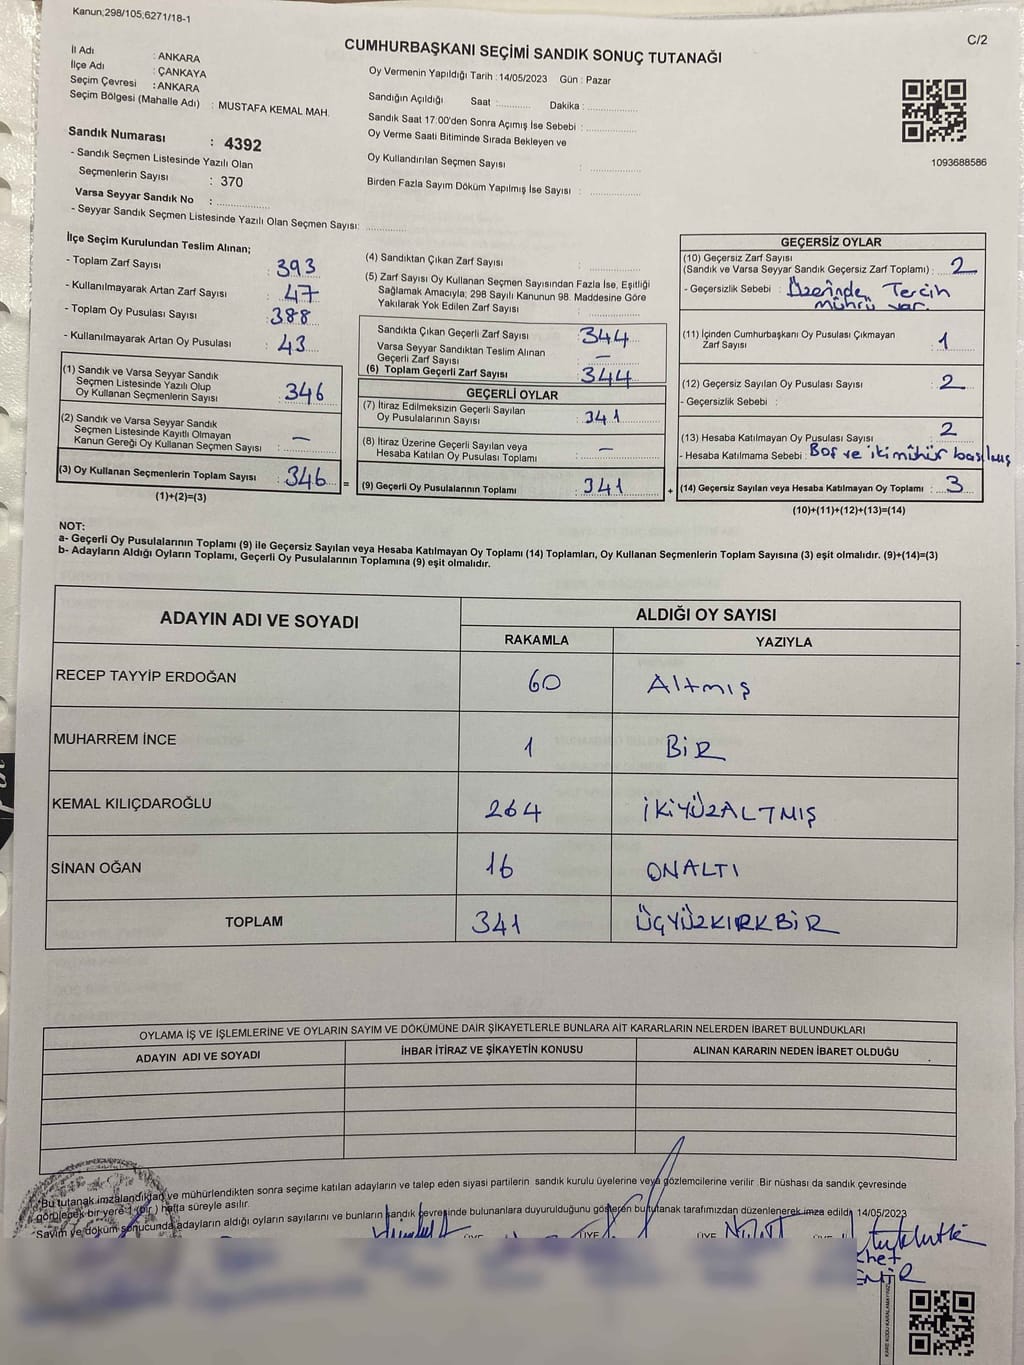 Kanun;298/105;6271/18-1
C/2
CUMHURBAŞKANI SEÇİMİ SANDIK SONUÇ TUTANAĞI
İl Adı : ANKARA
İlçe Adı : ÇANKAYA
Seçim Çevresi : ANKARA
Seçim Bölgesi (Mahalle Adı) : MUSTAFA KEMAL MAH.
Oy Vermenin Yapıldığı Tarih : 14/05/2023 Gün : Pazar
Sandığın Açıldığı Saat :........... Dakika :...............
Sandık Saat 17:00'den Sonra Açımış İse Sebebi :...............
Oy Verme Saati Bitiminde Sırada Bekleyen ve
Oy Kullandırılan Seçmen Sayısı : ...............
Birden Fazla Sayım Döküm Yapılmış İse Sayısı : ...............
1093688586
Sandık Numarası : 4392
- Sandık Seçmen Listesinde Yazılı Olan
Seçmenlerin Sayısı : 370
Varsa Seyyar Sandık No : ...............
- Seyyar Sandık Seçmen Listesinde Yazılı Olan Seçmen Sayısı: ............
İlçe Seçim Kurulundan Teslim Alınan;
- Toplam Zarf Sayısı : 393
- Kullanılmayarak Artan Zarf Sayısı : 47
- Toplam Oy Pusulası Sayısı : 388
- Kullanılmayarak Artan Oy Pusulası : 43
(1) Sandık ve Varsa Seyyar Sandık
Seçmen Listesinde Yazılı Olup
Oy Kullanan Seçmenlerin Sayısı : 346
(2) Sandık ve Varsa Seyyar Sandık
Seçmen Listesinde Kayıtlı Olmayan
Kanun Gereği Oy Kullanan Seçmen Sayısı : —
(3) Oy Kullanan Seçmenlerin Toplam Sayısı : 346 =
(1)+(2)=(3)
(4) Sandıktan Çıkan Zarf Sayısı : ...............
(5) Zarf Sayısı Oy Kullanan Seçmen Sayısından Fazla İse, Eşitliği
Sağlamak Amacıyla; 298 Sayılı Kanunun 98. Maddesine Göre
Yakılarak Yok Edilen Zarf Sayısı : ...............
Sandıkta Çıkan Geçerli Zarf Sayısı : 344
Varsa Seyyar Sandıktan Teslim Alınan
Geçerli Zarf Sayısı : —
(6) Toplam Geçerli Zarf Sayısı : 344
GEÇERLİ OYLAR
(7) İtiraz Edilmeksizin Geçerli Sayılan
Oy Pusulalarının Sayısı : 341
(8) İtiraz Üzerine Geçerli Sayılan veya
Hesaba Katılan Oy Pusulası Toplamı : —
(9) Geçerli Oy Pusulalarının Toplamı : 341 +
GEÇERSİZ OYLAR
(10) Geçersiz Zarf Sayısı
(Sandık ve Varsa Seyyar Sandık Geçersiz Zarf Toplamı) : 2
- Geçersizlik Sebebi : Üzerinde Tercih
mührü var.
(11) İçinden Cumhurbaşkanı Oy Pusulası Çıkmayan
Zarf Sayısı : 1
(12) Geçersiz Sayılan Oy Pusulası Sayısı : 2
- Geçersizlik Sebebi :
(13) Hesaba Katılmayan Oy Pusulası Sayısı : 2
- Hesaba Katılmama Sebebi : Boş ve iki mühür basılmış
(14) Geçersiz Sayılan veya Hesaba Katılmayan Oy Toplamı : 3
(10)+(11)+(12)+(13)=(14)
NOT:
a- Geçerli Oy Pusulalarının Toplamı (9) ile Geçersiz Sayılan veya Hesaba Katılmayan Oy Toplamı (14) Toplamları, Oy Kullanan Seçmenlerin Toplam Sayısına (3) eşit olmalıdır. (9)+(14)=(3)
b- Adayların Aldığı Oyların Toplamı, Geçerli Oy Pusulalarının Toplamına (9) eşit olmalıdır.
ADAYIN ADI VE SOYADI
ALDIĞI OY SAYISI
RAKAMLA YAZIYLA
RECEP TAYYİP ERDOĞAN 60 Altmış
MUHARREM İNCE 1 BİR
KEMAL KILIÇDAROĞLU 264 İKİYÜZALTMIŞ
SİNAN OĞAN 16 ONALTI
TOPLAM 341 ÜÇYÜZKIRKBİR
OYLAMA İŞ VE İŞLEMLERİNE VE OYLARIN SAYIM VE DÖKÜMÜNE DAİR ŞİKAYETLERLE BUNLARA AİT KARARLARIN NELERDEN İBARET BULUNDUKLARI
ADAYIN ADI VE SOYADI İHBAR İTİRAZ VE ŞİKAYETİN KONUSU ALINAN KARARIN NEDEN İBARET OLDUĞU
*Bu tutanak imzalandıktan ve mühürlendikten sonra seçime katılan adayların ve talep eden siyasi partilerin sandık kurulu üyelerine veya gözlemcilerine verilir. Bir nüshası da sandık çevresinde
görülecek bir yere 1 (bir ) hafta süreyle asılır.
*Sayım ve döküm sonucunda adayların aldığı oyların sayılarını ve bunların sandık çevresinde bulunanlara duyurulduğunu gösteren bu tutanak tarafımızdan düzenlenerek imza edildi. 14/05/2023
ÜYE ÜYE ÜYE ÜYE